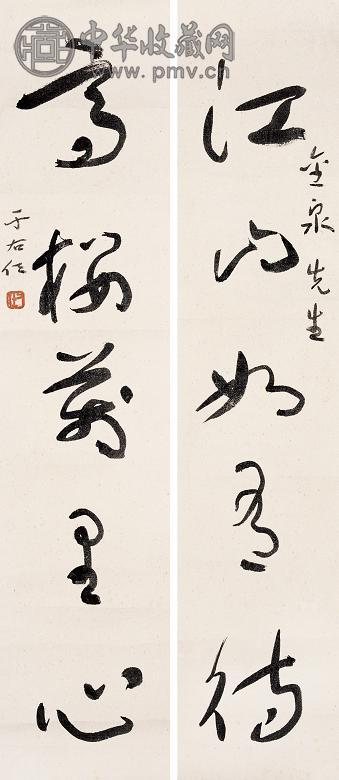 中华收藏网
www.pmv.cn
江山如有待
金泉先生
高樓萬里心
于右任